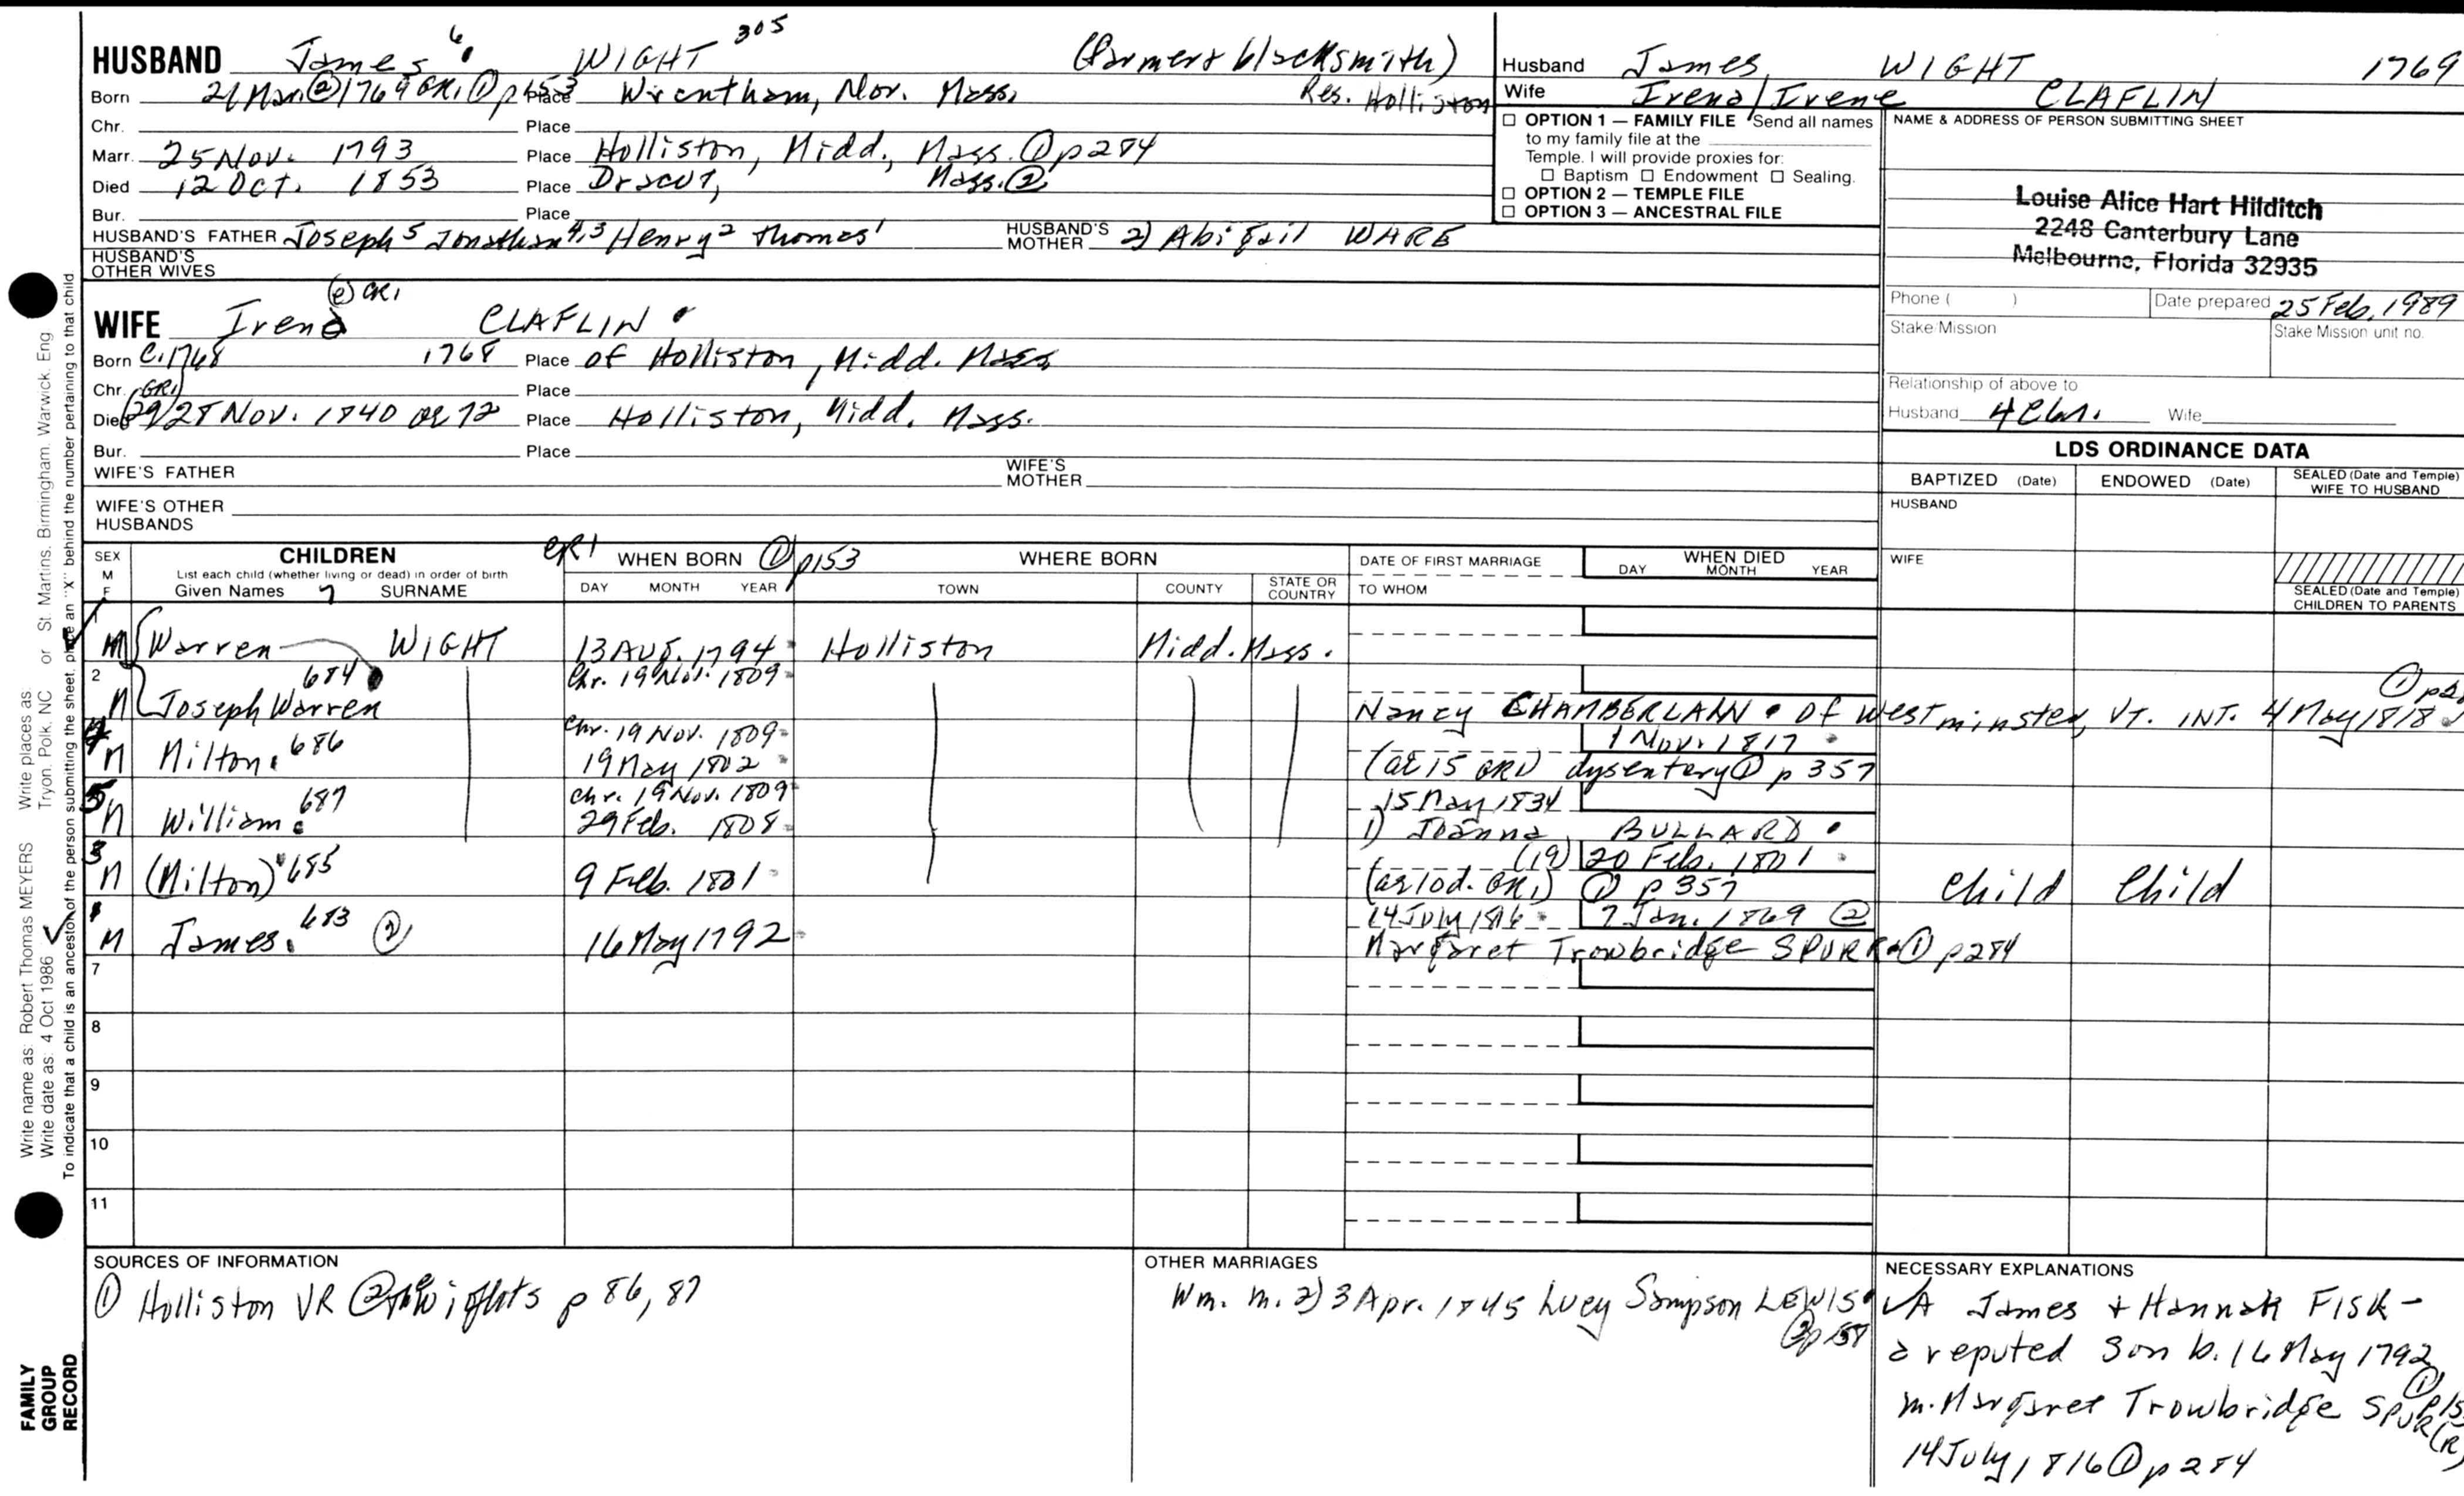 HUSBAND James 6 WIGHT 305 (farmer & blacksmith)
Born 21 Mar. ② 1769 GR1 ① p153 Place Wrentham, Nor. Mass. Res. Holliston
Chr. Place
Marr. 25 Nov. 1793 Place Holliston, Midd., Mass. ① p284
Died 12 Oct. 1853 Place Dracut, Mass. ②
Bur. Place
HUSBAND'S FATHER Joseph 5 Jonathan 4,3 Henry 2 Thomas 1 HUSBAND'S MOTHER 2) Abigail WARE
HUSBAND'S OTHER WIVES
Husband James WIGHT 1769
Wife Irena/Irene CLAFLIN
☐ OPTION 1 — FAMILY FILE Send all names
to my family file at the
Temple. I will provide proxies for:
☐ Baptism ☐ Endowment ☐ Sealing.
☐ OPTION 2 — TEMPLE FILE
☐ OPTION 3 — ANCESTRAL FILE
NAME & ADDRESS OF PERSON SUBMITTING SHEET
Louise Alice Hart Hilditch
2248 Canterbury Lane
Melbourne, Florida 32935
Phone ( ) Date prepared 25 Feb. 1989
Stake Mission Stake Mission unit no.
Relationship of above to
Husband 4 Wife
(e) GR1
WIFE Irena CLAFLIN
Born C. 1768 1768 Place of Holliston, Midd. Mass
Chr. Place
(GR1)
Died 29/28 Nov. 1840 ae 72 Place Holliston, Midd. Mass.
Bur. Place
WIFE'S FATHER WIFE'S MOTHER
WIFE'S OTHER HUSBANDS
LDS ORDINANCE DATA
BAPTIZED (Date) ENDOWED (Date) SEALED (Date and Temple) WIFE TO HUSBAND
HUSBAND
WIFE
SEALED (Date and Temple) CHILDREN TO PARENTS
SEX M F CHILDREN
List each child (whether living or dead) in order of birth
Given Names 7 SURNAME
GR1 WHEN BORN ① p153 WHERE BORN
DAY MONTH YEAR TOWN COUNTY STATE OR COUNTRY
DATE OF FIRST MARRIAGE
TO WHOM
WHEN DIED
DAY MONTH YEAR
1 M Warren WIGHT 13 Aug. 1794 Holliston Midd. Mass.
2 M Joseph Warren 684 Chr. 19 Nov. 1809
Nancy CHAMBERLAIN of Westminster, VT. INT. 4 May 1818
4 M Milton 686 Chr. 19 Nov. 1809 19 May 1802 1 Nov. 1817
(ae 15 GR1) dysentery ① p 357
5 M William 687 Chr. 19 Nov. 1809 29 Feb. 1808 15 May 1834
1) Joanna BULLARD
3 M (Milton) 685 9 Feb. 1801 (19) 20 Feb. 1801
(ae 10d. GR1) ① p 357 Child Child
1 M James 683 ② 16 May 1792 14 July 1816 7 Jan. 1869 ②
Margaret Trowbridge SPURR ① p284
7
8
9
10
11
SOURCES OF INFORMATION
① Holliston VR ② The Wights p 86, 87
OTHER MARRIAGES
Wm. m. 2) 3 Apr. 1845 Lucy Sampson LEWIS
NECESSARY EXPLANATIONS
✓A James + Hannah FISK -
a reputed son b. 16 May 1792
m. Margaret Trowbridge SPUR(R)
14 July, 1816 ① p 284
Write name as: Robert Thomas MEYERS Write places as
Write date as: 4 Oct 1986 Tryon. Polk. NC or St. Martins. Birmingham. Warwick. Eng
To indicate that a child is an ancestor of the person submitting the sheet, place an "X" behind the number pertaining to that child
FAMILY
GROUP
RECORD